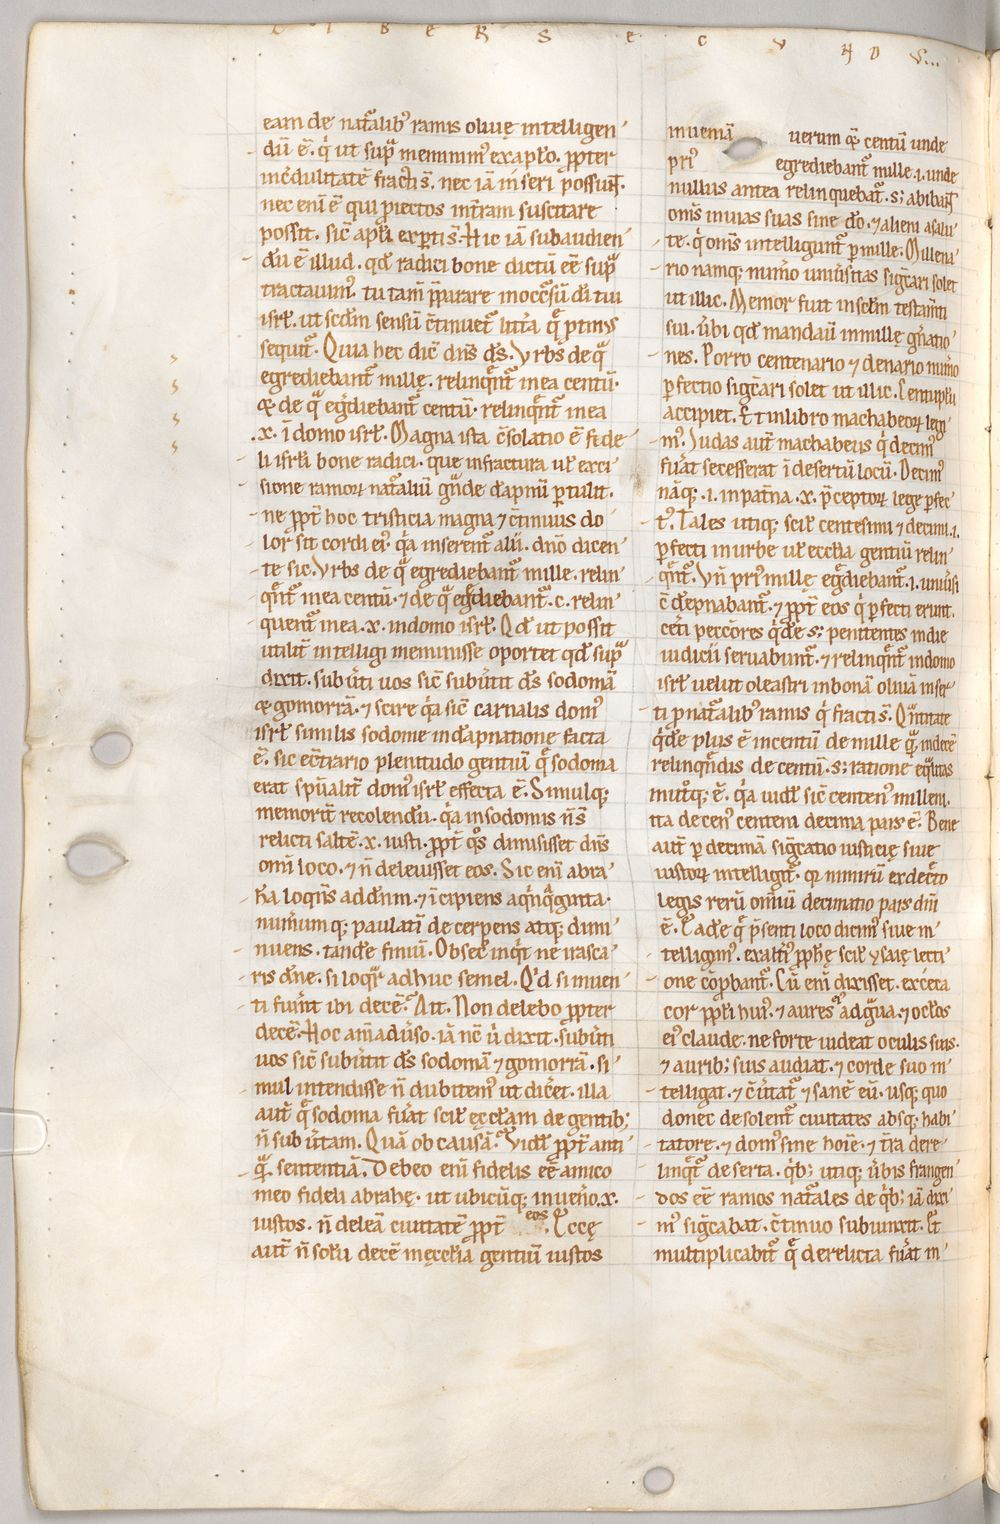 L I B E R S E C U N D U...
eam de nat̃alib; ramis oliuę intelligen
dũ ẽ. q̇ ut sup̃ meminim᾽ ex ap̃lo. p̱pter
incdulitatẽ fracti s̃. nec iã inseri possun̄t.
nec eni ẽ qui p̱iectos in t̃ram suscitare
possit. sic̃ ap̃li exp̱ti s̃. Hic iã subaudien
dũ ẽ illud. qđ radici bone dictũ eẽ sup̃
tractauim᾽. tu tam̃ p̄parare in occ̃sũ đi tui
isr̃l. ut scđm sensũ c̃tinuet᷑ litt̃a q̃ p̱tin᾽
sequit᷑. Quia hec dic̃ dñs đs. Vrbs de q̃
egrediebant᷑ millę. relinq̃nt᷑ in ea centũ.
& de q̃ eg̃diebant᷑ centũ. relinq̃nt᷑ in ea
.x. ĩ domo isr̃l. Magna ista c̃solatio ẽ fide
li isr̃li bone radici. que infractura uł exci
sione ramoꝝ nat̃aliũ g̃nde đapnũ p̱tulit.
ne p̱p̃t hoc tristicia magna ⁊ c̃tinuus do
lor sit cordi ei᾽. q̇a inserent᷑ alii. dño dicen
te sic. Vrbs de q̃ egrediebant᷑ mille. relin
q̃nt᷑ in ea centũ. ⁊ de q̃ eg̃diebant᷑ .c. relin
quent᷑ in ea .x. in domo isr̃l. Qđ ut possit
utilit̃ intelligi meminisse oportet qđ sup̃
dixit. subũti uos sic̃ subũtit đs sodomã
& gomorrã. ⁊ scire q̇a sic̃ carnalis dom᾽
isr̃l similis sodome in đapnatione facta
ẽ. sic ec̃trario plenitudo gentiũ q̃ sodoma
erat sp̃ualit̃ dom᾽ isr̃l effecta ẽ. Simulq;
memorit̃ recolendũ. q̇a in sodomis ñ s̃
relicti saltẽ .x. iusti. p̱p̃t q̊s dimisisset dñs
omĩ loco. ⁊ ñ deleuisset eos. Sic eni abra
hã loqñs ad dñm. ⁊ ĩcipiens a q̃nq̃ginta.
numũmq; paulatĩ decerpens atq; dimi
nuens. tandẽ finiũ. Obsec̃ inq̇t ne irasca
ris dñe. si loq̃r adhuc semel. Qđ si inuen
ti fuũt ibi decẽ? Ait. Non delebo p̱pter
decẽ. Hoc am̃aduso. iã nc̃ ũ dixit. subũti
uos sic̃ subũtit đs sodomã ⁊ gomorrã. si
mul intendisse ñ dubitem᾽ ut dic̃et. illa
aut̃ q̃ sodoma fũat scił ęcclãm de gentib;
ñ subũtam. Quã ob causã? Vidł p̱p̃t anti
q̃ sententiã. Debeo eni fidelis eẽ amico
meo fideli abrahę. ut ubicũq; inueñio .x.
iustos. ñ deleã ciuitatẽ p̱p̃t eos. Eccę
aut̃ ñ solũ decẽ in ęccłia gentiũ iustos
inueniã uerum & centũ unde
pri᾽ egrediebant᷑ mille .i. unde
nullus antea relinquebat᷑. s; abibant
om̃s in uias suas sine đo. ⁊ alieni a salu
te. q̇ om̃s intelligunt᷑ p̱ mille. Millena
rio namq; num̃o uniũsitas sig̃cari solet
ut illic. Memor fuit in sclm testam̃ti
sui. ũbi qđ mandauit in mille gñatio
nes. Porro centenario ⁊ denario num̃o
p̱fectio sig̃cari solet ut illic. Centuplũ
accipiet. Et in libro machabeoꝝ legi
m᾽. Iudas aut̃ machabeus q̇ decim᾽
fũat secesserat ĩ desertũ locũ. Decim᾽
nãq; .i. in pat̃na .x. p̃ceptoꝝ lege p̱fec
t᾽. Tales utiq; scił centesimi ⁊ decimi .i.
p̱fecti in urbe uł eccłia gentiũ relin
q̃nt᷑. Vñ pri᾽ millę eg̃diebant᷑ .i. uniũsi
c̃đepnabant᷑. ⁊ p̱p̃t eos q̇ p̱fecti erunt.
cet̃i pecc̃ores q̇dẽ s; penitentes in die
iudicii seruabunt᷑. ⁊ relinq̃nt᷑ in domo
isr̃l uelut oleastri in bonã oliuã inser
ti p̱ nat̃alib; ramis q̇ fracti s̃. Q̃ntitate
q̇dẽ plus ẽ in centũ de mille q̃ in decẽ
relinq̃ndis de centũ. s; ratione eq̃litas
mutoq; ẽ. q̇a uidł sic̃ centen᾽ milleni.
ita decen᾽ centeni decima pars ẽ. Bene
aut̃ p̱ decimã sig̃catio iusticię siue
iustoꝝ intelligit᷑. q̇a nimirũ ex dec̃to
legis rerũ omniũ decimatio pars dñi
ẽ. Eadẽ q̃ p̃senti loco dicim᾽ siue in
telligim᾽. ex alt̃i᾽ p̱phę scił ysaię lecti
one c̃p̱bant᷑. Cũ eni dixisset. exceca
cor pp̃li hui᾽. ⁊ aures ei᾽ adg̃ua. ⁊ oc̃los
ei᾽ claude. ne forte uideat oculis suis.
⁊ aurib; suis audiat. ⁊ corde suo in
telligat. ⁊ c̃ũtat᷑ ⁊ sanẽ eũ. usq; quo
donec desolent᷑ ciuitates absq; habi
tatore. ⁊ dom᾽ sine hoĩe. ⁊ t̃ra dere
linq̃t᷑ deserta. q̇b; utiq; ũbis frangen
dos eẽ ramos nat̃ales de q̇b; iã dixi
m᾽ sig̃cabat. c̃tinuo subiunxit. Et
multiplicabit᷑ q̃ derelicta fũat in